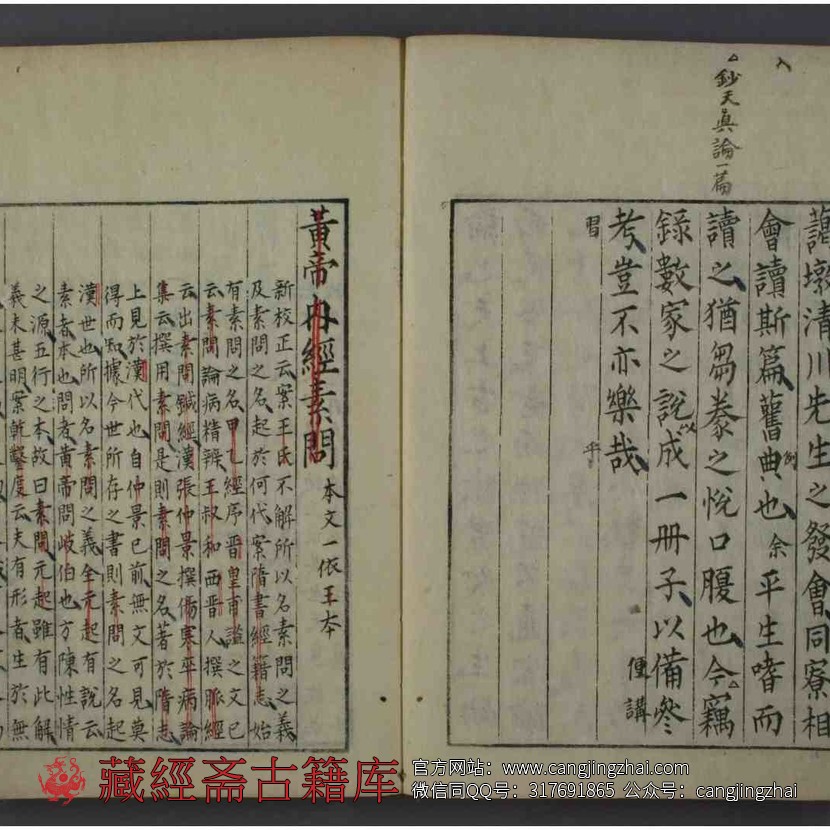 入
鈔天眞論一篇
藹墩清川先生之發會同寮相
會讀斯篇舊典也余平生嗜而
例
讀之猶芻豢之悅口腹也今竊
錄數家之說以成一冊子以備參
考豈不亦樂哉
便講
習
乎
黃帝內經素問本文一依王本
新校正云案王氏不解所以名素問之義
及素問之名起於何代案隋書經籍志始
有素問之名甲乙經序晉皇甫謐之文已
云素問論病精辨王叔和西晉人撰脈經
云出素問鍼經漢張仲景撰傷寒卒病論
集云撰用素問是則素問之名著於隋志
上見於漢代也自仲景已前無文可見莫
得而知據今世所存之書則素問之名起
漢世也所以名素問之義全元起有說云
素者本也問者黃帝問岐伯也方陳性情
之源五行之本故曰素問元起雖有此解
義未甚明案乾鑿度云夫有形者生於無
藏經斋古籍库
官方网站：www.cangjingzhai.com
微信同QQ号：317691865 公众号：cangjingzhai